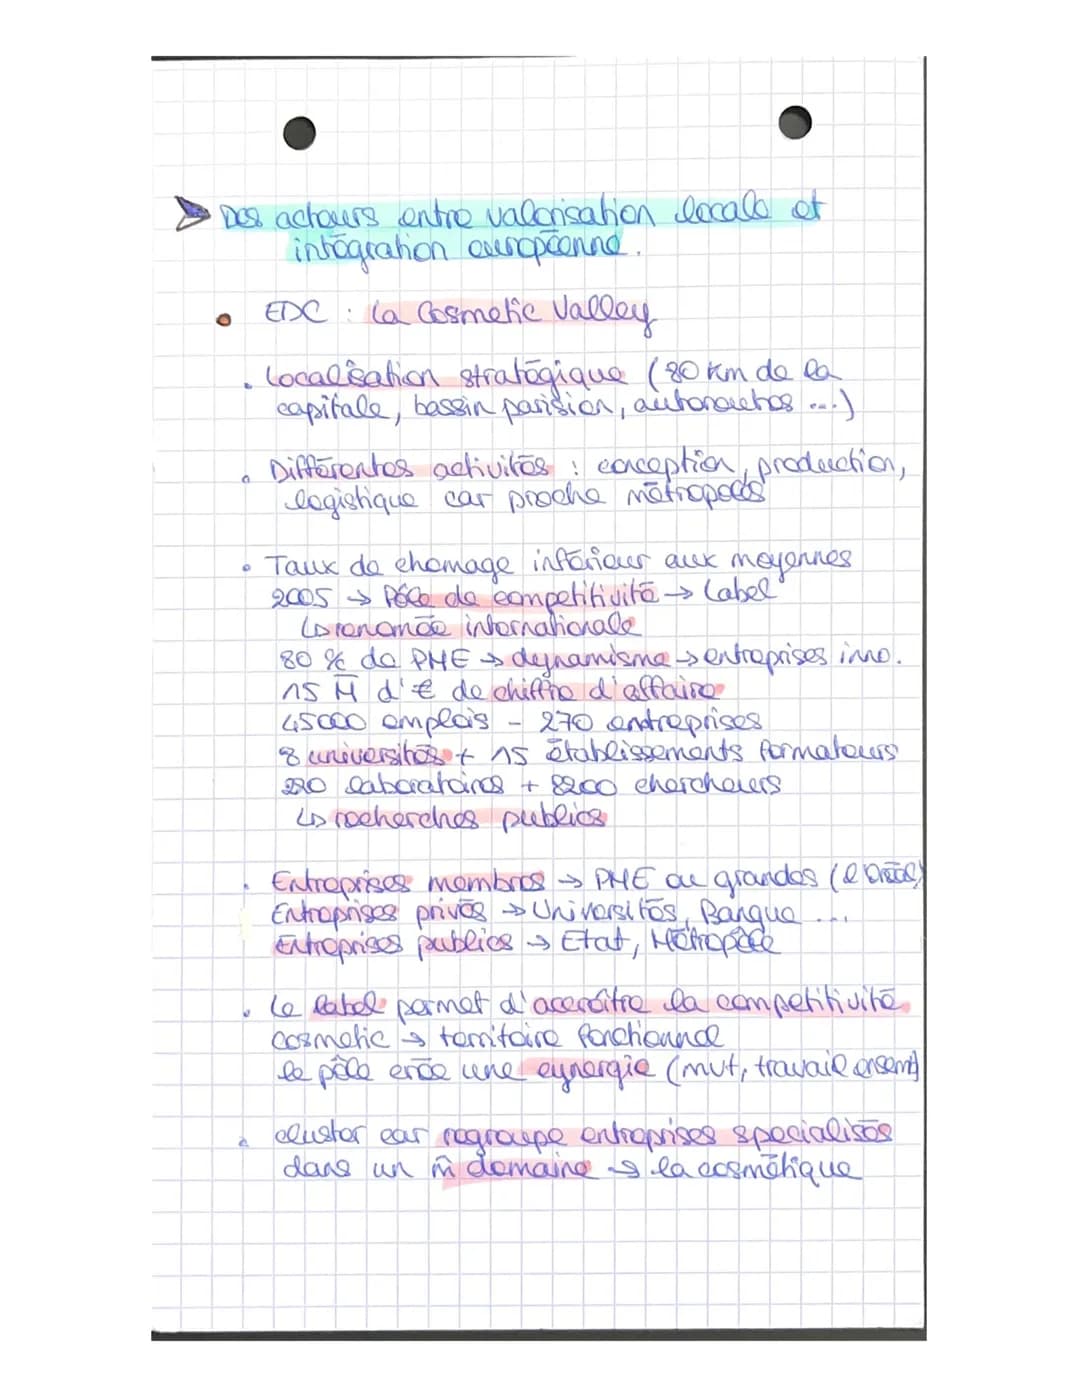 Des acteurs entre valorisation locale et
intégration européenne.
EDC : La Cosmetic Valley
. Localisation stratégique (80 km de la
capitale, bassin parisien, autoroutes ...)
. Différentes activités : conception, production,
logistique car proche métropoles
. Taux de chomage inférieur aux moyennes
2005 → Pôle de competitivité → Label
↳ renomée internationale
80 % de PME → dynamisme → entreprises inno.
15 M d'€ de chiffre d'affaire
45000 emplois - 270 entreprises
8 universités + 15 établissements formateurs
220 laboratoires + 8200 chercheurs
↳ recherches publics
. Entreprises membres → PME ou grandes (l'Oréal)
Entreprises privés → Universités, Banque ...
Entreprises publics → Etat, Métropole
. Le label permet d'accroître la competitivité
cosmetic → territoire fonctionnel
le pôle crée une synergie (mut, travail ensem)
. cluster car regroupe entreprises specialisés
dans un m̂ domaine → la cosmétique